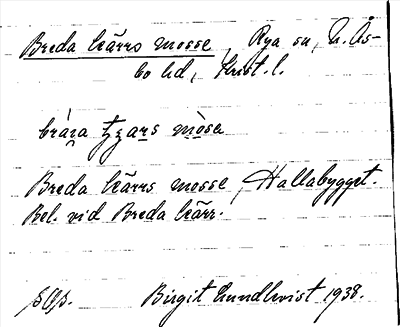 Breda kärrs mosse, Rya sn, N. Ås-
bo hd, Krist. l.
Breda kärrs mosse, Hallabygget.
Bel. vid Breda kärr.
Birgit Lundkvist 1938.